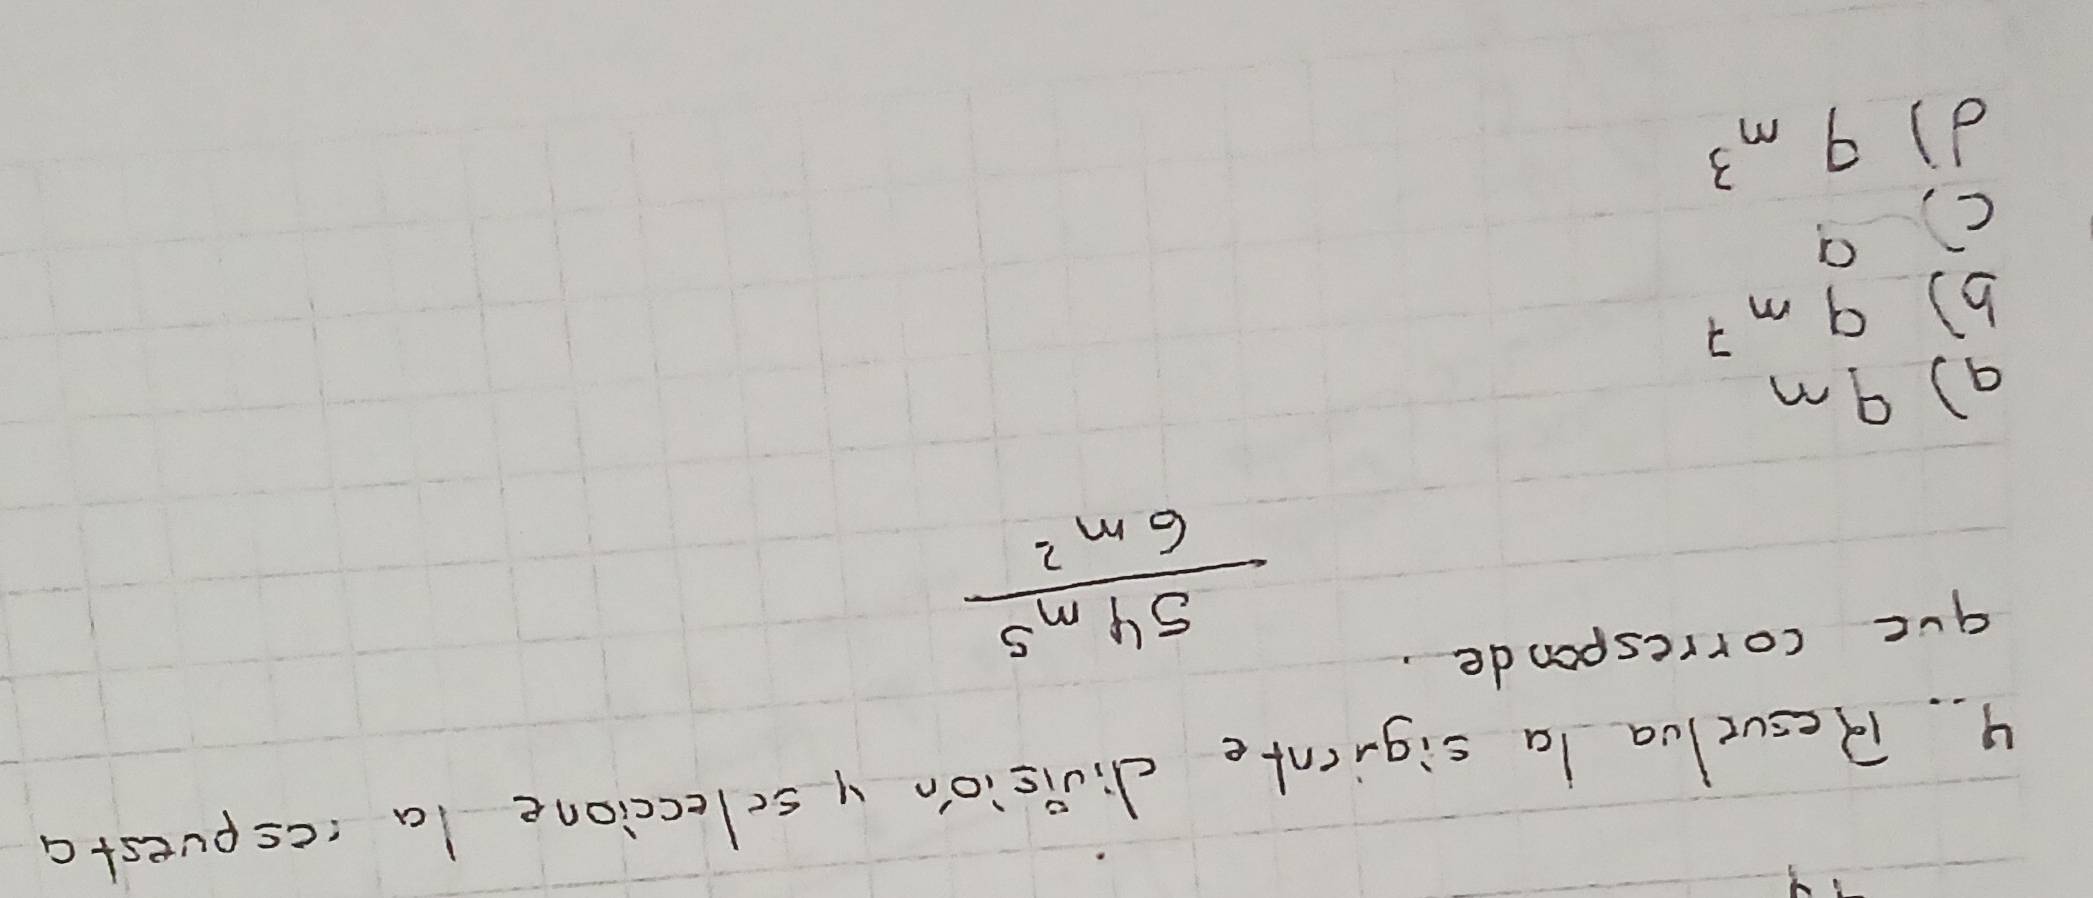 4.. Resuelva la siguiente división y seleccione la respuesta
que corresponde.
54m⁵
6m²
a) 9m
b) 9m⁷
c) 9
d) 9m³